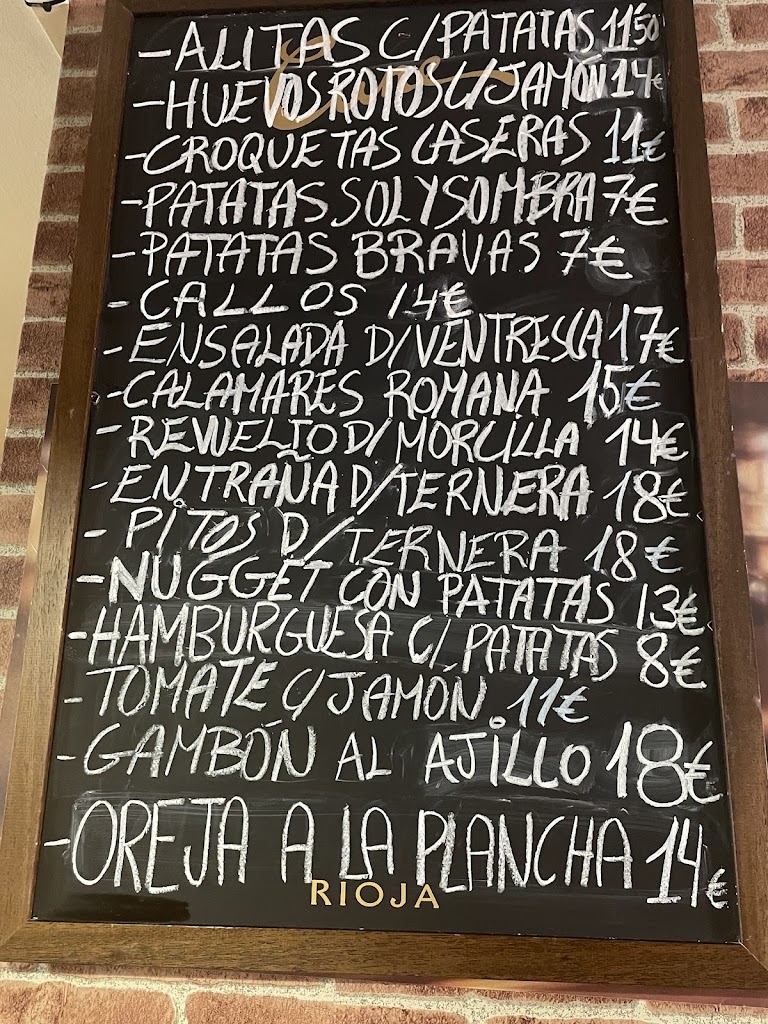 - ALITAS C/PATATAS 11'50
- HUEVOS ROTOS C/JAMÓN 14€
- CROQUETAS CASERAS 11€
- PATATAS SOL Y SOMBRA 7€
- PATATAS BRAVAS 7€
- CALLOS 14€
- ENSALADA D/VENTRESCA 17€
- CALAMARES ROMANA 15€
- REVUELTO D/MORCILLA 14€
- ENTRAÑA D/TERNERA 18€
- PITOS D/TERNERA 18€
- NUGGET CON PATATAS 13€
- HAMBURGUESA C/PATATAS 8€
- TOMATE C/JAMÓN 11€
- GAMBÓN AL AJILLO 18€
- OREJA A LA PLANCHA 14€
RIOJA